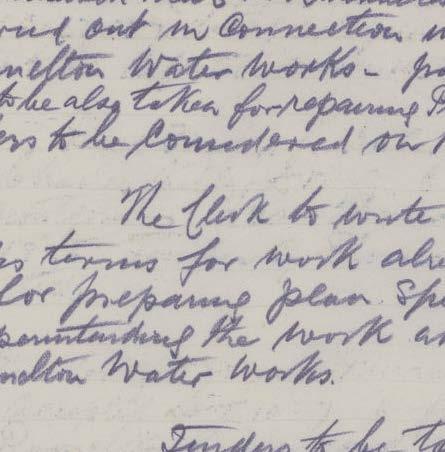 out in Connection
Water Works –
to be also taken for repairing
to be Considered on
The Clerk to write
terms for work alre
for preparing plan Sp
the work a
Water Works.
Tenders to be t